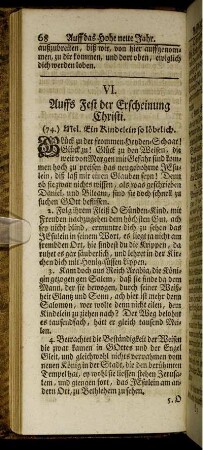 68 Auff das Hohe neue Jahr.
außzubreiten, biß wir, von hier auffgenom-
men, zu dir kommen, und dort oben, ewiglich
dich werden loben.
VI.
Auffs Fest der Erscheinung
Christi.
(74.) Mel. Ein Kindelein so löbelich.
Glück zu der frommen Heyden-Schaar!
Glück zu! Glück zu den Weisen, die
weit von Morgen mit Gefahr sind kom-
men hoch zu preisen das neugebohrne JEsu-
lein, deß laß mir einen Glauben seyn! Denn
ob sie zwar nichts wissen, als was geschrieben
Daniel, und Bileam, sind sie doch schnell zu
suchen GOtt beflissen.
2. Folg ihrem Fleiß O Sünden-Kind, mit
Freuden nachzugehen dem höchsten Gut, ach
sey nicht blind, ermuntre dich zu sehen das
JEsulein in seinem Wort, es liegt ja nicht am
fremdden Ort, hie findest du die Krippen, da
ruhet es gar säuberlich, und lehret in der Kir-
chen dich mit Honig-süssen Lippen.
3. Kam doch aus Reich Arabia, die Köni-
gin gezogen gen Salem, daß sie finde da den
Mann, der sie bewogen, durch seiner Weiß-
heit Glantz und Sonn, ach hier ist mehr denn
Salomon, wer wolte denn nicht eilen, dem
Kindelein zu ziehen nach? Der Weg belohnt
es tausendfach, hätt er gleich tausend Mei-
len.
4. Betrachtet die Beständigkeit der Weisen
die zwar kamen in GOttes und der Engel
Gleit, und gleichwohl nichts vernahmen vom
neuen König in der Stadt, die den berühmten
Tempel hat, ey wohl sie liessen stehen Jerusa-
lem, und giengen fort, das JEsulein am an-
dern Ort, zu Bethlehem zu sehen.
5. O